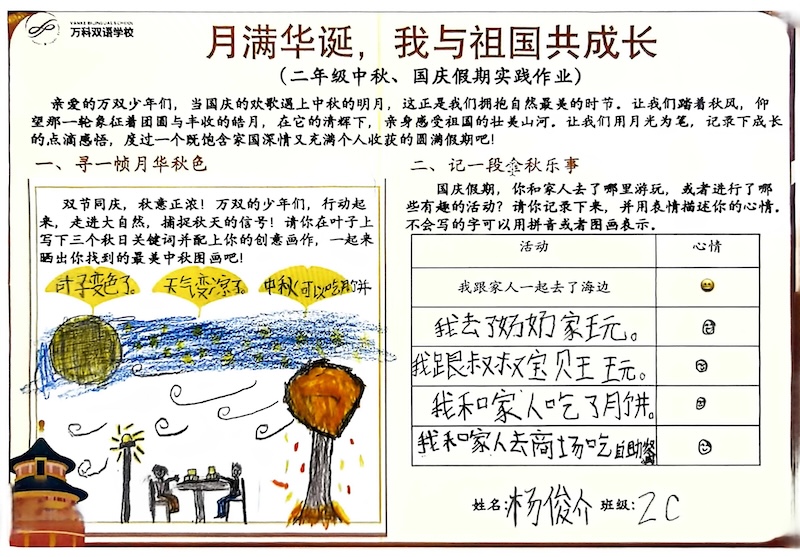 VANKE BILINGUAL SCHOOL
万科双语学校
月满华诞，我与祖国共成长
（二年级中秋、国庆假期实践作业）
亲爱的万双少年们，当国庆的欢歌遇上中秋的明月，这正是我们拥抱自然最美的时节。让我们踏着秋风，仰
望那一轮象征着团圆与丰收的皓月，在它的清辉下，亲身感受祖国的壮美山河。让我们用月光为笔，记录下成长
的点滴感悟，度过一个既饱含家国深情又充满个人收获的圆满假期吧！
一、寻一帧月华秋色
双节同庆，秋意正浓！万双的少年们，行动起
来，走进大自然，捕捉秋天的信号！请你在叶子上
写下三个秋日关键词并配上你的创意画作，一起来
晒出你找到的最美中秋图画吧！
叶子变色了。
天气变凉了。
中秋可以吃月饼
二、记一段金秋乐事
国庆假期，你和家人去了哪里游玩，或者进行了哪
些有趣的活动？请你记录下来，并用表情描述你的心情。
不会写的字可以用拼音或者图画表示。
活动 心情
我跟家人一起去了海边
我去了奶奶家玩。
我跟叔叔宝贝王玩。
我和家人吃了月饼。
我和家人去商场吃自助餐
姓名:杨俊介 班级:2C